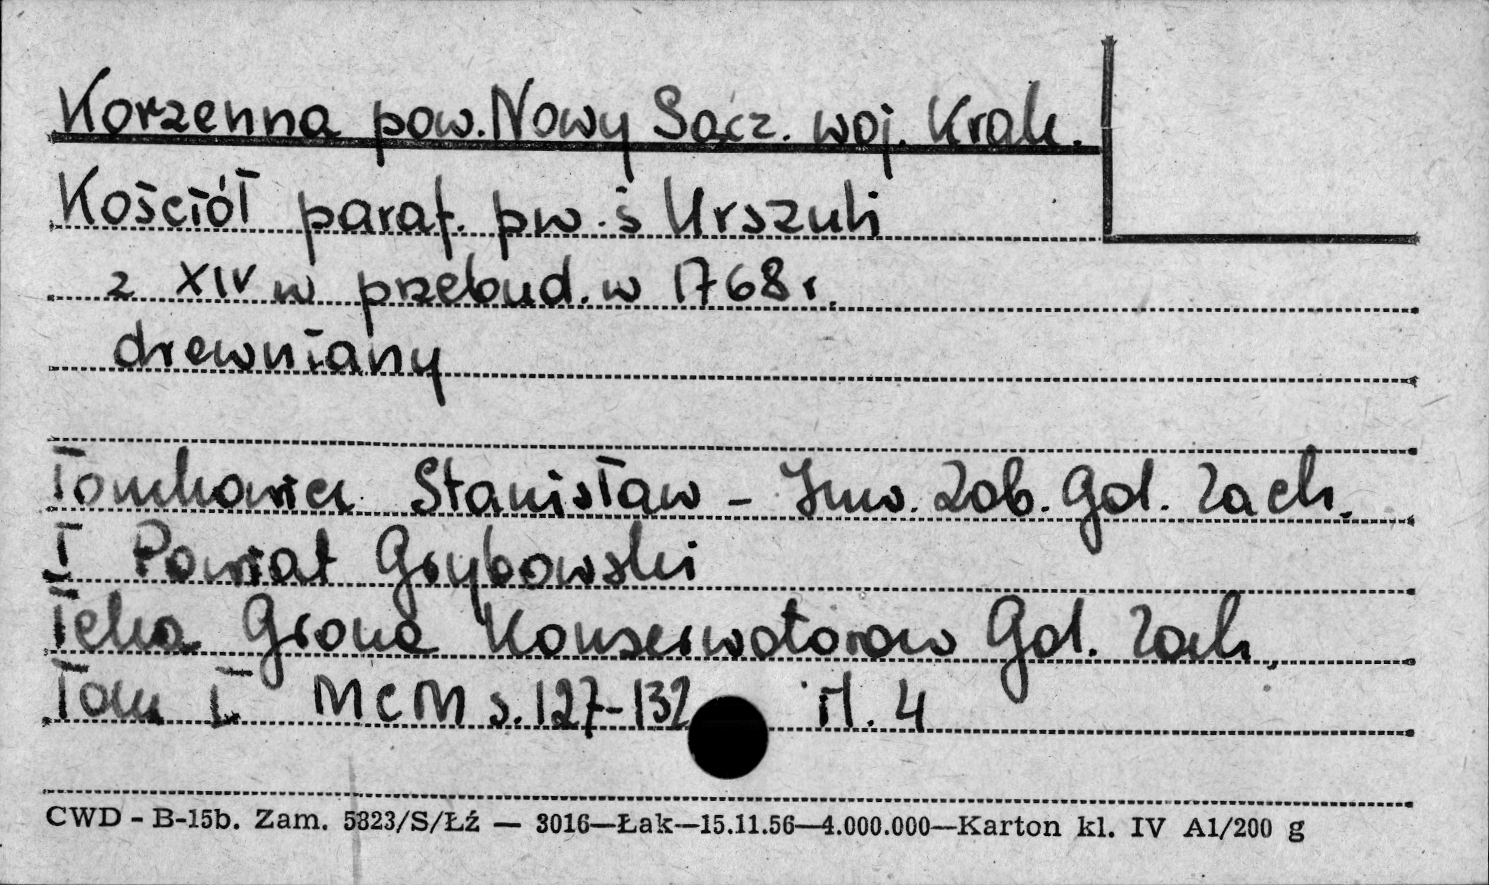 Korzenna pow. Nowy Sącz. woj. Krak.
Kościół paraf. pw. ś Urszuli
z XIV w przebud. w 1768 r.
drewniany
Tomkowicz Stanisław - Inw. Zab. Gal. Zach.
I Powiat Grybowski
Teka Grona Konserwatorow Gal. Zach.
Tom I MCM s. 127-132 il. 4
CWD - B-15b. Zam. 5323/S/Łź — 3016—Łak—15.11.56—4.000.000—Karton kl. IV A1/200 g